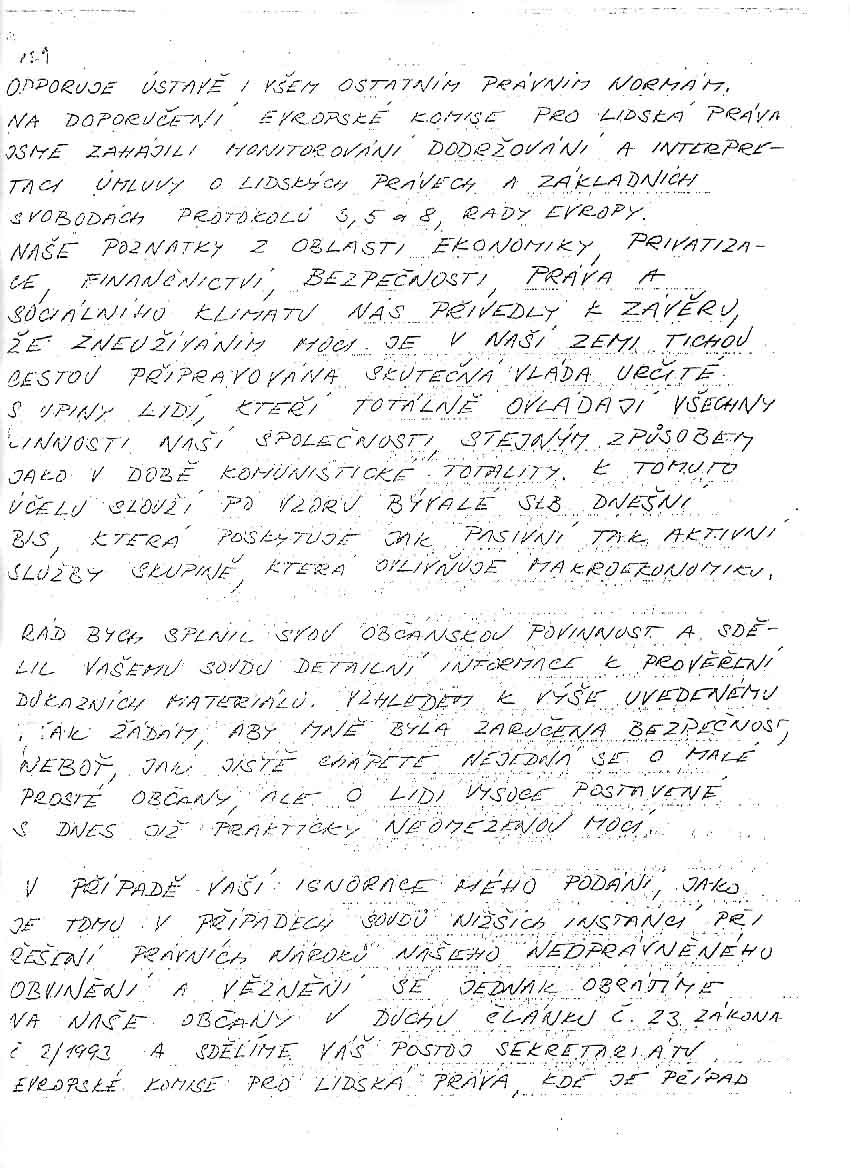 139
ODPORUJE ÚSTAVĚ I VŠEM OSTATNÍM PRÁVNÍM NORMÁM.
NA DOPORUČENÍ EVROPSKÉ KOMISE PRO LIDSKÁ PRÁVA
JSME ZAHÁJILI MONITOROVÁNÍ DODRŽOVÁNÍ A INTERPRE-
TACI ÚMLUVY O LIDSKÝCH PRÁVECH A ZÁKLADNÍCH
SVOBODÁCH PROTOKOLŮ 3, 5 a 8, RADY EVROPY.
NAŠE POZNATKY Z OBLASTI EKONOMIKY, PRIVATIZA-
CE, FINANČNICTVÍ, BEZPEČNOSTI, PRÁVA A
SOCIÁLNÍHO KLIMATU NÁS PŘIVEDLY K ZÁVĚRU,
ŽE ZNEUŽÍVÁNÍM MOCI JE V NAŠÍ ZEMI TICHOU
CESTOU PŘIPRAVOVÁNA SKUTEČNÁ VLÁDA URČITÉ
SKUPINY LIDÍ, KTEŘÍ TOTÁLNĚ OVLÁDAJÍ VŠECHNY
ČINNOSTI NAŠÍ SPOLEČNOSTI, STEJNÝM ZPŮSOBEM
JAKO V DOBĚ KOMUNISTICKÉ TOTALITY. K TOMUTO
ÚČELU SLOUŽÍ PO VZORU BÝVALÉ StB DNEŠNÍ
BIS, KTERÁ POSKYTUJE JAK PASIVNÍ TAK AKTIVNÍ
SLUŽBY SKUPINĚ, KTERÁ OVLIVŇUJE MAKROEKONOMIKU.
RÁD BYCH SPLNIL SVOU OBČANSKOU POVINNOST A SDĚ-
LIL VAŠEMU SOUDU DETAILNÍ INFORMACE K PROVĚŘENÍ
DŮKAZNÍCH MATERIÁLŮ. VZHLEDEM K VÝŠE UVEDENÉMU
TAK ŽÁDÁM, ABY MNĚ BYLA ZARUČENA BEZPEČNOST,
NEBOŤ, JAK JISTĚ CHÁPETE NEJEDNÁ SE O MALÉ
PROSTÉ OBČANY, ALE O LIDI VYSOCE POSTAVENÉ
S DNES JIŽ PRAKTICKY NEOMEZENOU MOCÍ.
V PŘÍPADĚ VAŠÍ IGNORACE MÉHO PODÁNÍ, JAKO
JE TOMU V PŘÍPADECH SOUDŮ NIŽŠÍCH INSTANCÍ PŘI
ŘEŠENÍ PRÁVNÍCH NÁROKŮ NAŠEHO NEOPRÁVNĚNÉHO
OBVINĚNÍ A VĚZNĚNÍ SE JEDNAK OBRÁTÍME
NA NAŠE OBČANY V DUCHU ČLÁNKU Č. 23 ZÁKONA
č 2/1993 A SDĚLÍME VÁŠ POSTOJ SEKRETARIÁTU
EVROPSKÉ KOMISE PRO LIDSKÁ PRÁVA, KDE JE PŘÍPAD